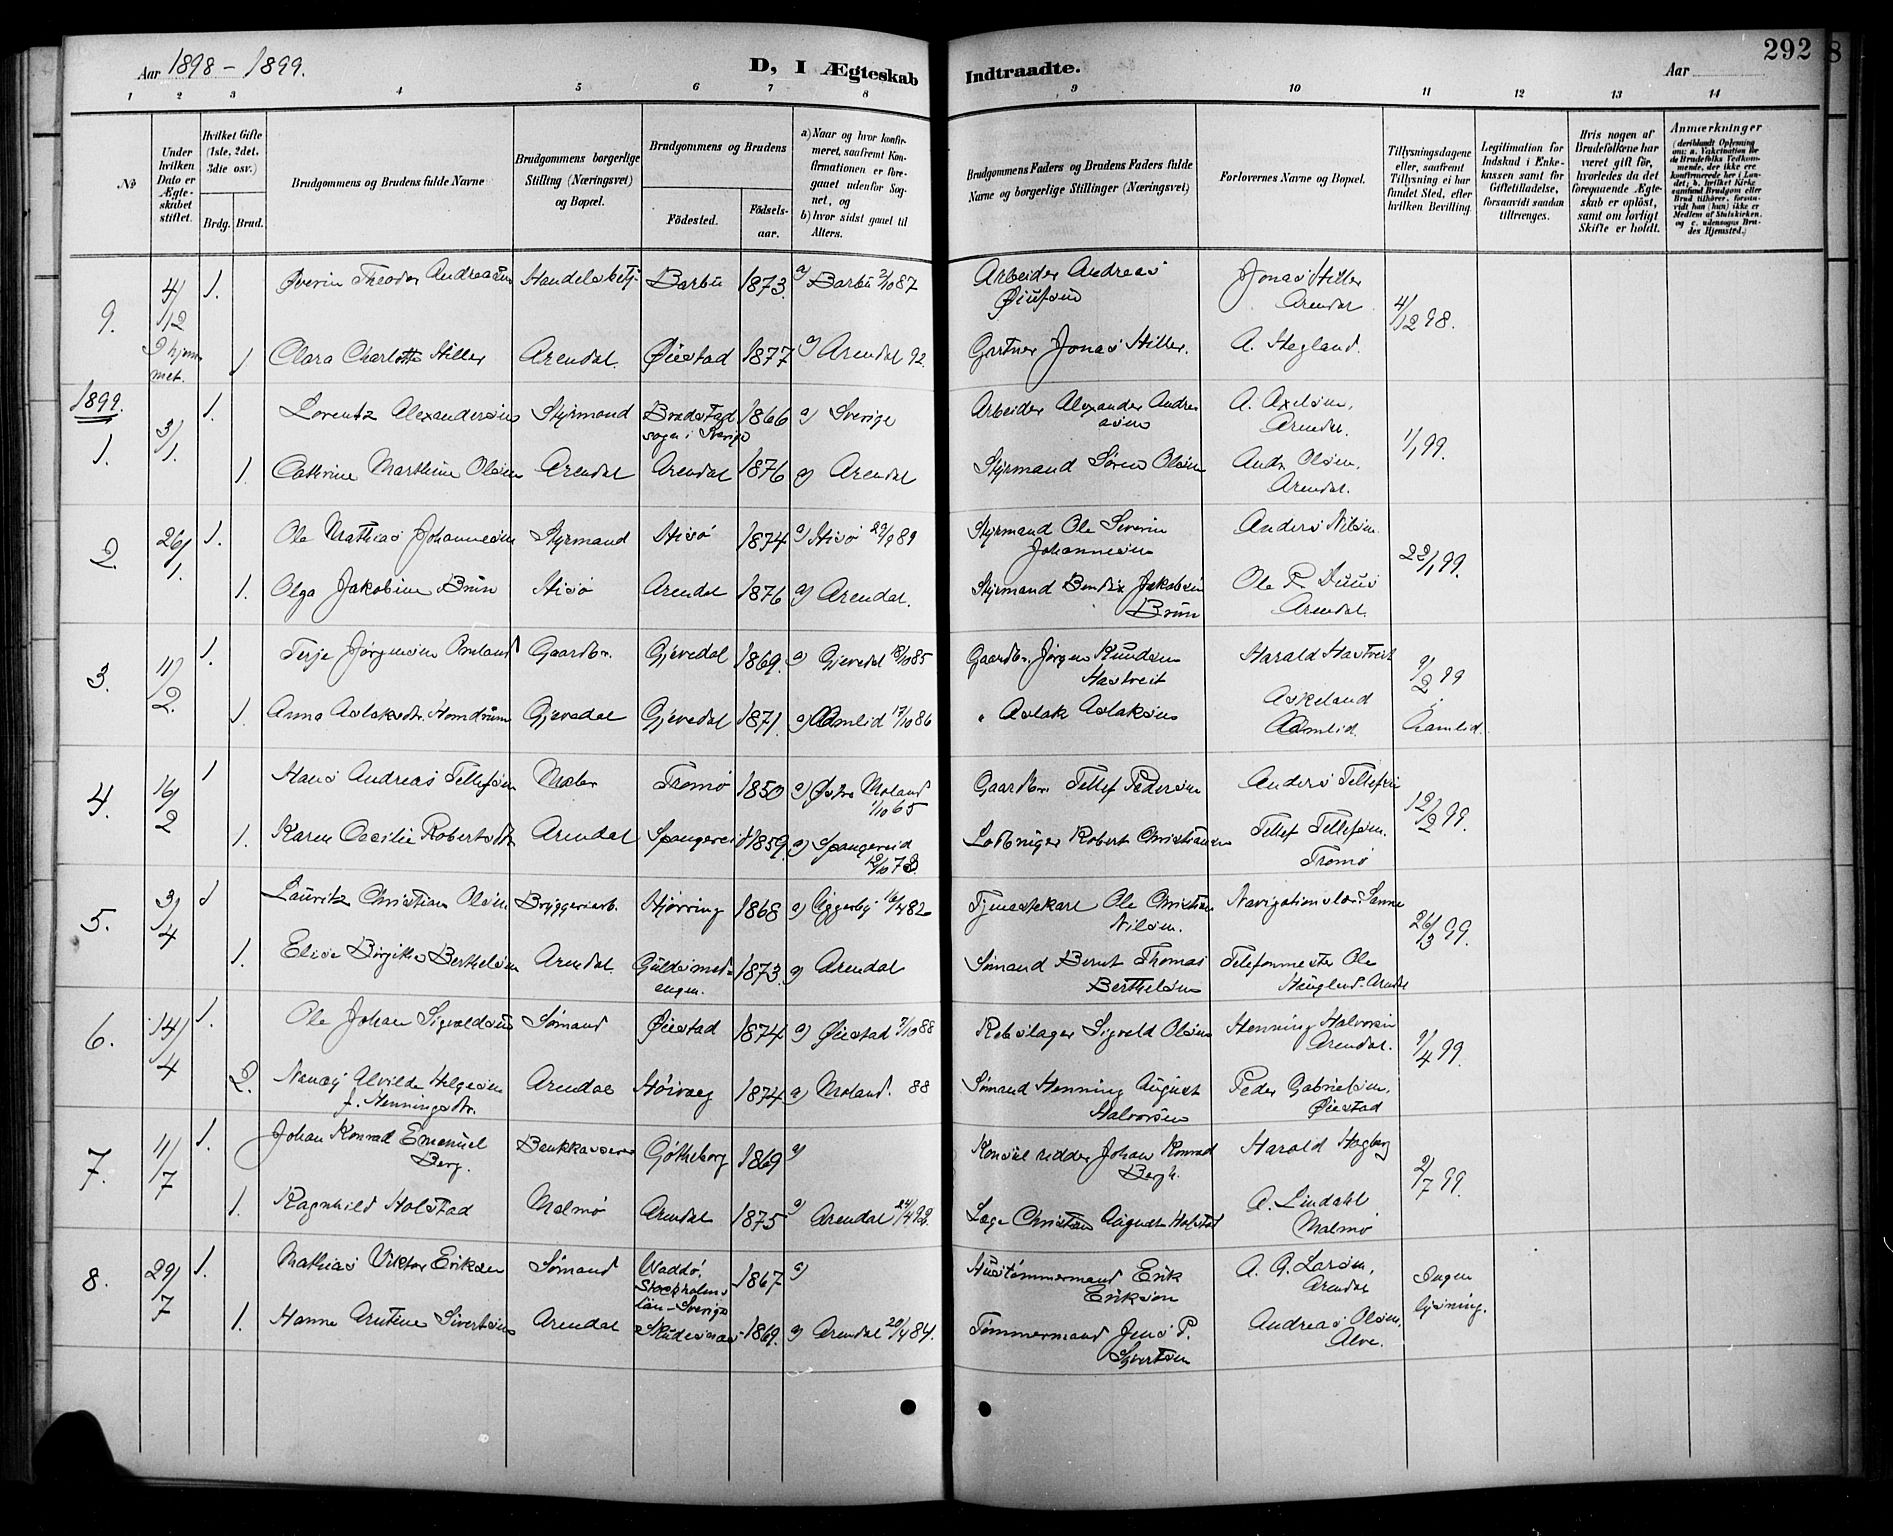 Aar 1898 - 1899.
D, I Ægteskab Indtraadte.
Aar
292
8
1 2 3 4 5 6 7 8 9 10 11 12 13 14
No
Under hvilken Dato er Ægteskabet stiftet.
Hvilket Gifte (1ste, 2det, 3die osv.)
Brdg. Brud.
Brudgommens og Brudens fulde Navne
Brudgommens borgerlige Stilling (Næringsvei) og Bopæl.
Brudgommens og Brudens
Födested.
Födselsaar.
a) Naar og hvor konfirmeret, saafremt Konfirmationen er foregaaet udenfor Sognet, og
b) hvor sidst gaaet til Alters.
Brudgommens Faders og Brudens Faders fulde Navne og borgerlige Stillinger (Næringsvei)
Forlovernes Navne og Bopæl.
Tillysningsdagene eller, saafremt Tillysning ei har fundet Sted, efter hvilken Bevilling.
Legitimation for Indskud i Enkekassen samt for Giftetilladelse, forsaavidt saadan tiltrænges.
Hvis nogen af Brudefolkene har været gift för, hvorledes da det foregaaende Ægteskab er oplöst, samt om lovligt Skifte er holdt.
Anmærkninger (deriblandt Oplysning om: a. Vakcination for de Brudefolks Vedkommende, der ikke ere konfirmerede her i Landet; b. hvilket Kirkesamfund Brudgom eller Brud tilhörer, forsaavidt han (hun) ikke er Medlem af Statskirken, og c. udensogns Brudes Hjemsted.)
9. 4/12 1. Øverin Theodor Andreasen Handelsbetj. Barbu 1873. a) Barbu 2/10 87 Arbeider Andreas Jonas Hiller Arendal 4/12 98.
1 Clara Charlotte Hiller Arendal. Øiestad 1877 a) Arendal 92. Gartner Jonas Hiller. A. Hegland.
1899.
1. 3/1. 1. Lorentz Alexandersen Styrmand 1866 a) Sverige Arbeider Alexander Andreasen A. Axelsen, Arendal. 1/1 99.
1. Cathrine Marthine Olsen Arendal Arendal 1876 a) Arendal Styrmand Sören Olsen Andr. Olsen, Arendal.
2. 26/1. 1. Ole Mathias Johannesen Styrmand Hisö 1874 a) Hisö 29/9 89 Styrmand Ole Severin Johannesen Anders Nilsen 22/1 99.
1. Olga Jakobine Brun Hisö Arendal 1876 a) Arendal. Styrmand Bendix Jakobsen Brun Ole P. Duus Arendal.
3. 11/2. 1. Terje Jørgensen Omland Gaardbr. Gjevedal 1869. a) Gjevedal 18/10 85 Gaardbr. Jørgen Knudsen Hastveit Harald Hastveit 9/2 99
1. Anna Aslaksdtr. Homdrum Gjevedal Gjevedal 1871. a) Aamlid 17/10 86 " Aslak Aslaksen Askeland Aamlid. i Aamlid.
4. 16/2 1 Hans Andreas Tellefsen Maler Tromö 1850 a) Østre Moland 1/10 65 Gaardbr. Tellef Pedersen Anders Tellefsen 12/2 99.
1. Karen Cecilie Robertsdtr. Arendal Spangereid 1859. a) Spangereid Robert Christiansen Tellef Tellefsen. Tromö
5. 3/4 1 Lauritz Christian Olsen Bryggeriarb. Hjörring 1868 a) Uggerby 16/4 82 Tjenestekarl Ole Christian Nilsen. Navigationslær. Sanne 26/3 99.
1. Elise Birgitte Berthelsen Arendal Guldsmedengen. 1873. a) Arendal Sömand Bernt Thomas Berthelsen Telefonmester Ole Haugland. Arendal
6. 14/4 1. Ole Johan Sigvaldsen Sömand Øiestad 1874 a) Øiestad 7/10 88 Rebslager Sigvald Olsen Henning Halvorsen Arendal. 9/4 99.
2. Nancy Alvilde Helgesen f. Henningsdtr. Arendal Höivaag 1874 a) Moland. 88 Sömand Henning August Halvorsen Peder Gabrielsen, Øiestad
7. 11/7 1. Johan Konrad Emanuel Berg. Bankkasserer Götheborg 1869 a) Konsul ridder Johan Konrad Bergh. Harald Hagberg 2/7 99.
1. Ragnhild Holstad Malmö Arendal 1875 a) Arendal Læge Christian August Holstad A. Lindahl Malmö
8. 29/7 1. Mathias Viktor Eriksen Sömand Waddö, Stockholms län - Sverige 1867 a) Hustömmermand Erik Eriksen A. G. Larsen, Arendal Ingen lysning.
1. Hanne Arntine Sivertsen Arendal Skudesnæs 1869. a) Arendal 20/4 84. Tömmermand Jens P. Syvertsen Andreas Olsen, Alve.